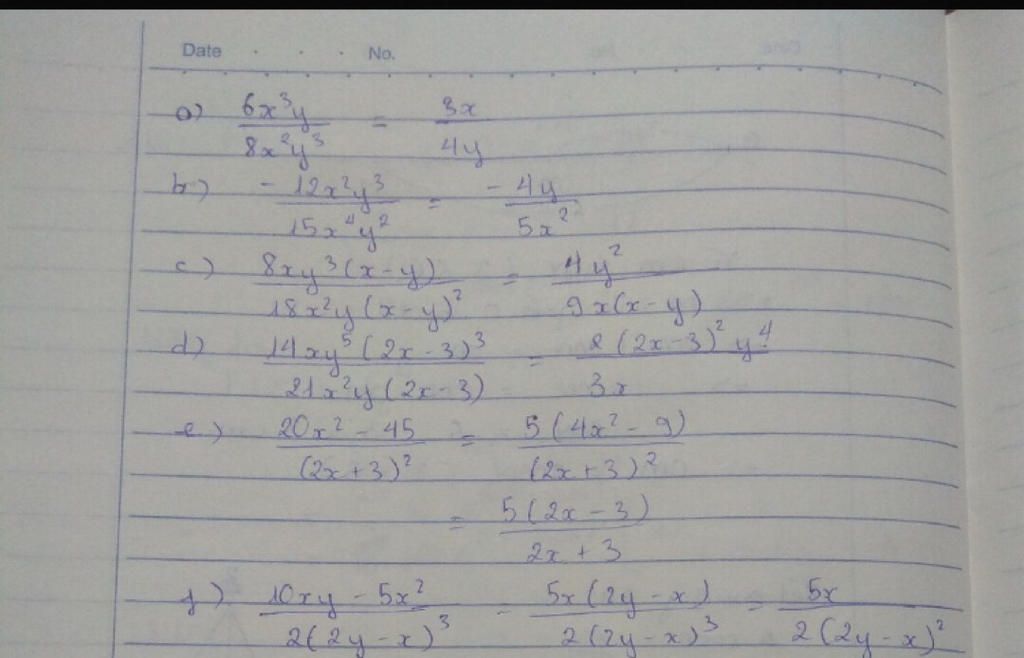 Date . . . No.
a) 6x³y / 8x²y³ = 3x / 4y
b) - 12x²y³ / 15x⁴y² = - 4y / 5x²
c) 8xy³(x-y) / 18x²y(x-y)² = 4y² / 9x(x-y)
d) 14xy⁵(2x-3)³ / 21x²y(2x-3) = 2(2x-3)²y⁴ / 3x
e) 20x² - 45 / (2x+3)² = 5(4x² - 9) / (2x+3)²
= 5(2x - 3) / 2x + 3
f) 10xy - 5x² / 2(2y-x)³ = 5x(2y-x) / 2(2y-x)³ = 5x / 2(2y-x)²